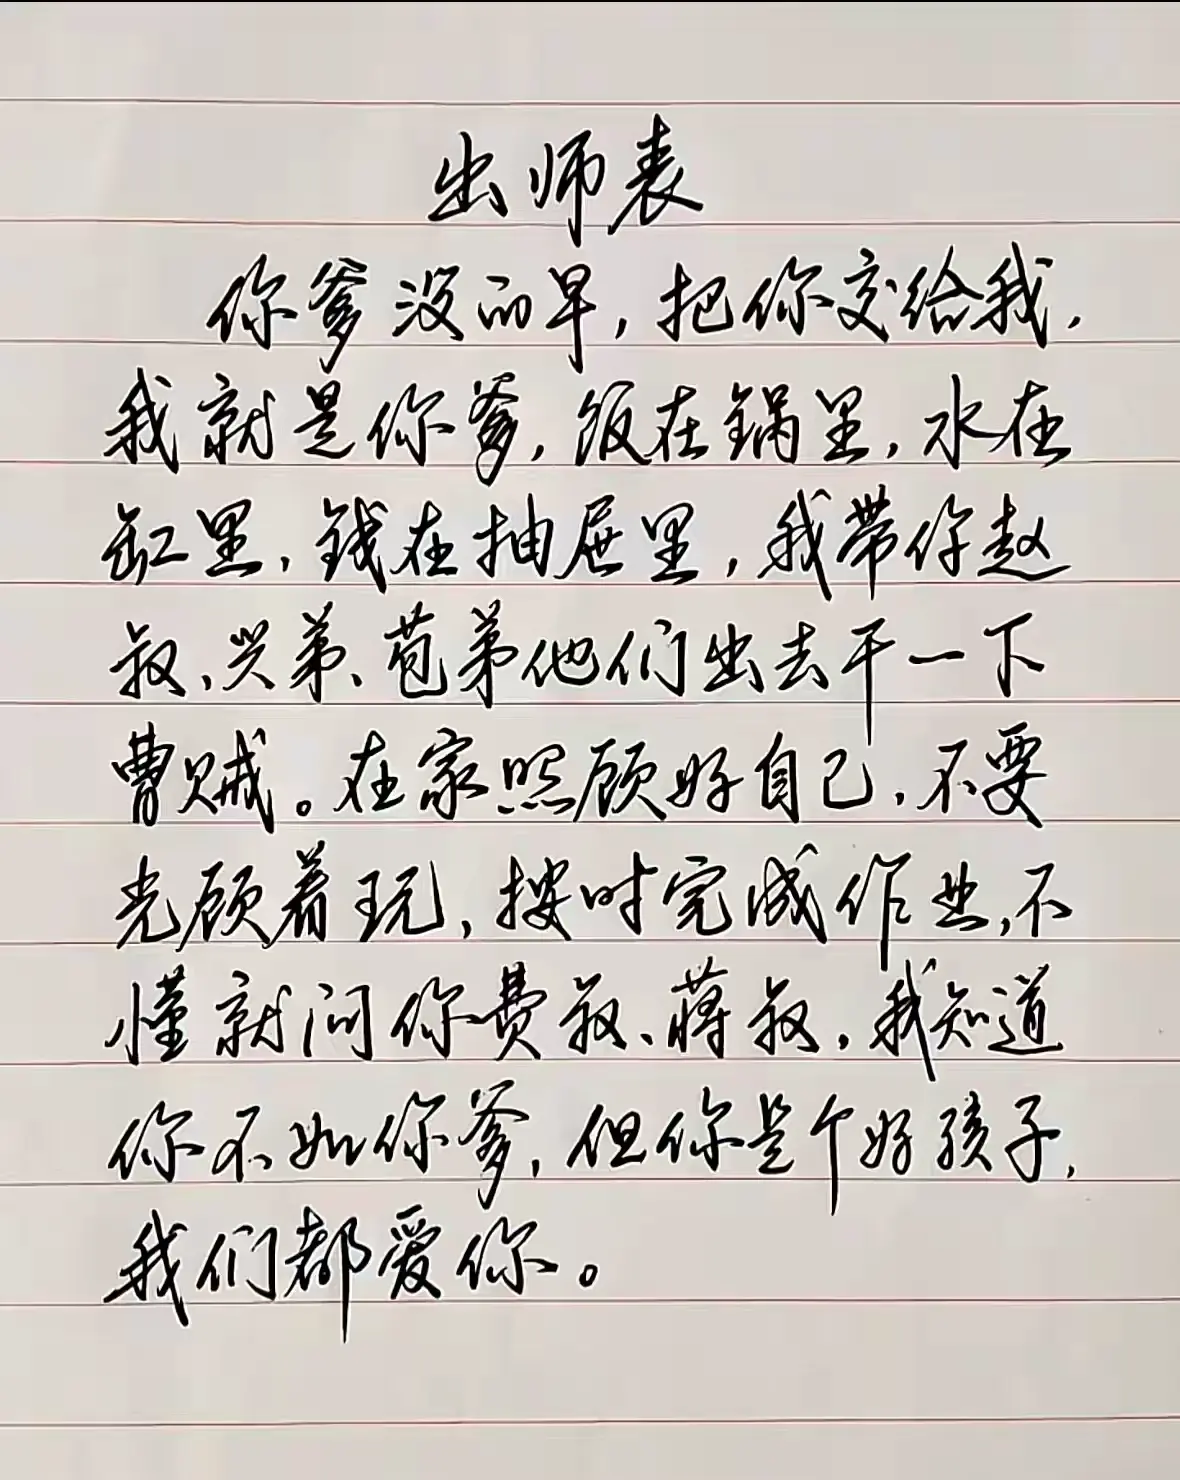 出师表
你爹没的早，把你交给我，
我就是你爹，饭在锅里，水在
缸里，钱在抽屉里，我带你赵
叔、兴弟、苞弟他们出去干一下
曹贼。在家照顾好自己，不要
光顾着玩，按时完成作业，不
懂就问你费叔、蒋叔，我知道
你不如你爹，但你是个好孩子，
我们都爱你。